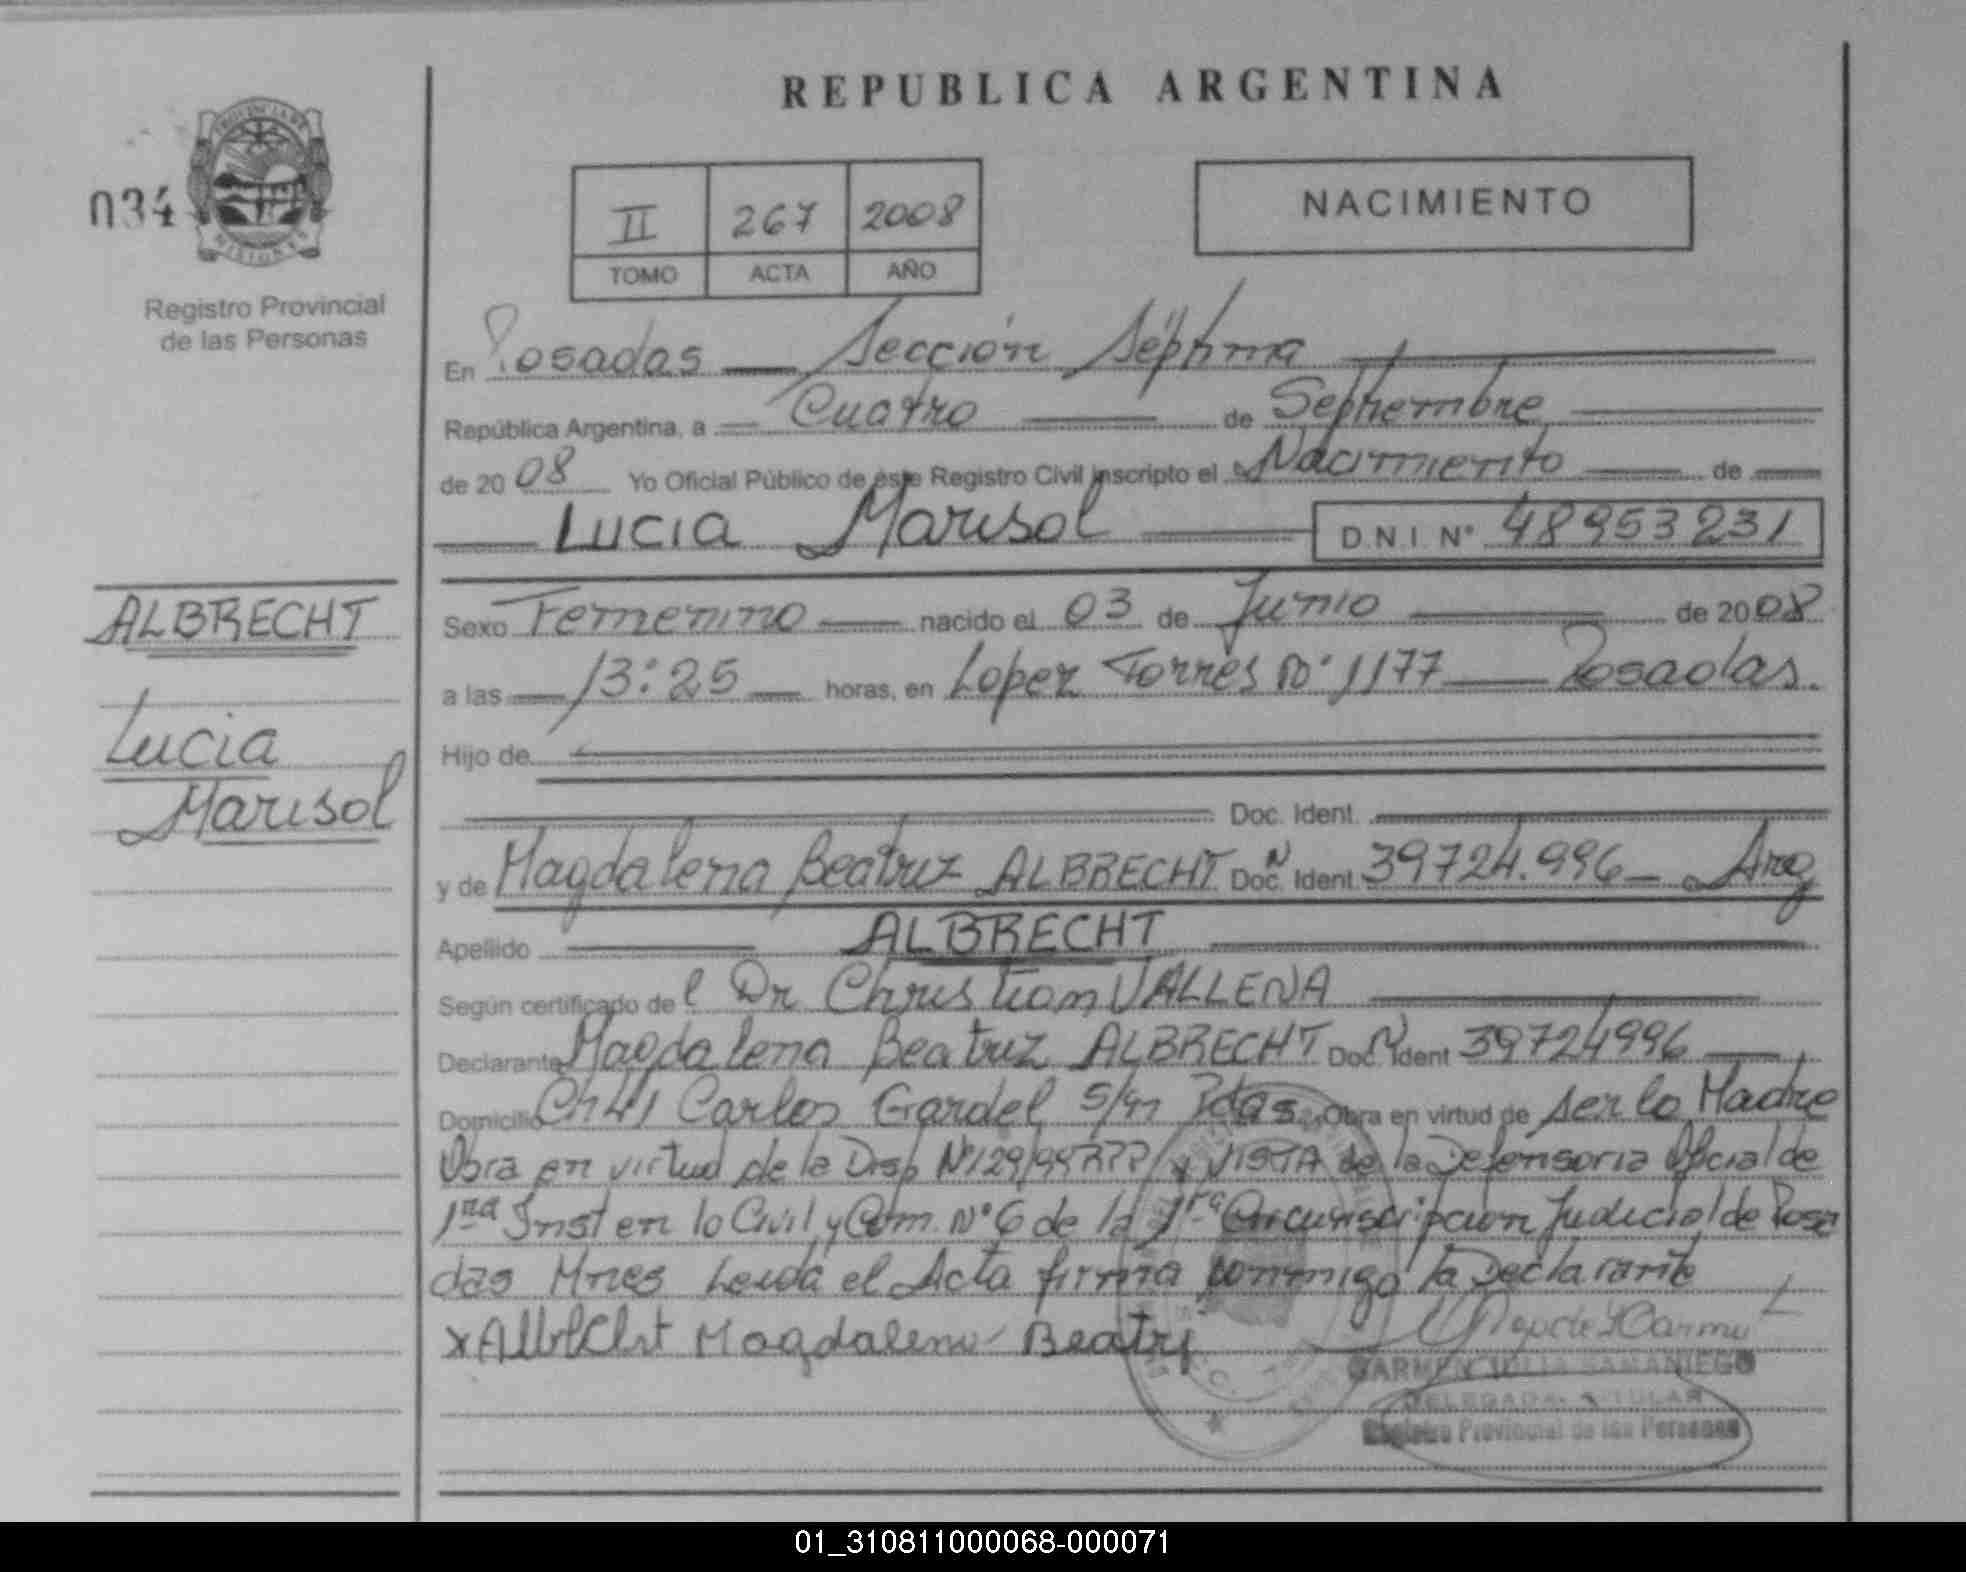 REPUBLICA ARGENTINA
034
Registro Provincial
de las Personas
II 267 2008
TOMO ACTA AÑO
NACIMIENTO
En Posadas Sección Séptima
República Argentina, a Cuatro de Septiembre
de 20 08 Yo Oficial Público de este Registro Civil inscripto el Nacimiento de
Lucia Marisol D.N.I. Nº 48953231
ALBRECHT
Lucia
Marisol
Sexo Femenino nacido el 03 de Junio de 2008
a las 13:25 horas, en Lopez Torres Nº 1177 Posadas.
Hijo de
Doc. Ident.
y de Magdalena Beatriz ALBRECHT Doc. N Ident. 39724.996 Arg
Apellido ALBRECHT
Según certificado del Dr Christian VALLENA
Declarante Magdalena Beatriz ALBRECHT Doc. N Ident 39724996
Domicilio Ch 41 Carlos Gardel S/n Pdas. Obra en virtud de ser la Madre
Obra en virtud de la Disp Nº 129/99 RPP y VISTA de la Defensoria Oficial de
1ra Inst en lo Civil y Com. Nº 6 de la 1ra Circunscripcion Judicial de Posa
das Mnes Leida el Acta firma conmigo la Declarante
x Albrecht Magdalena Beatriz
CARMEN JULIA SAMANIEGO
DELEGADA TITULAR
Registro Provincial de las Personas
01_310811000068-000071